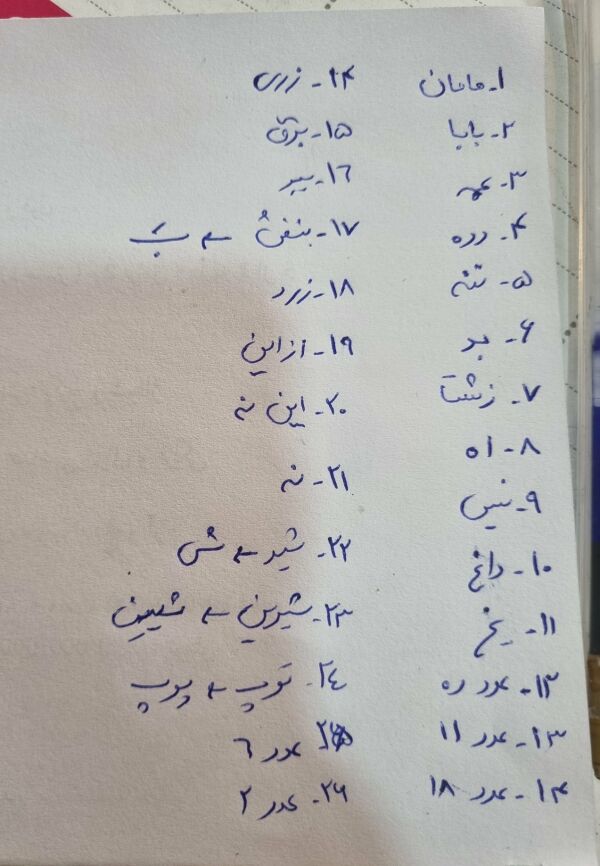 ۱- مامان
۲- بابا
۳- عمه
۴- دده
۵- ننه
۶- بد
۷- زشت
۸- اه
۹- نیس
۱۰- داغ
۱۱- یخ
۱۲- عدد ده
۱۳- عدد ۱۱
۱۴- عدد ۱۸
۱۴- زری
۱۵- برق
۱۶- ببر
۱۷- بنفش ←
۱۸- زرد
۱۹- از این
۲۰- این نه
۲۱- نه
۲۲- شید ← شی
۲۳- شیرین ← شیین
۲۴- توپ ← پوپ
۲۵ عدد ۶
۲۶- عدد ۲